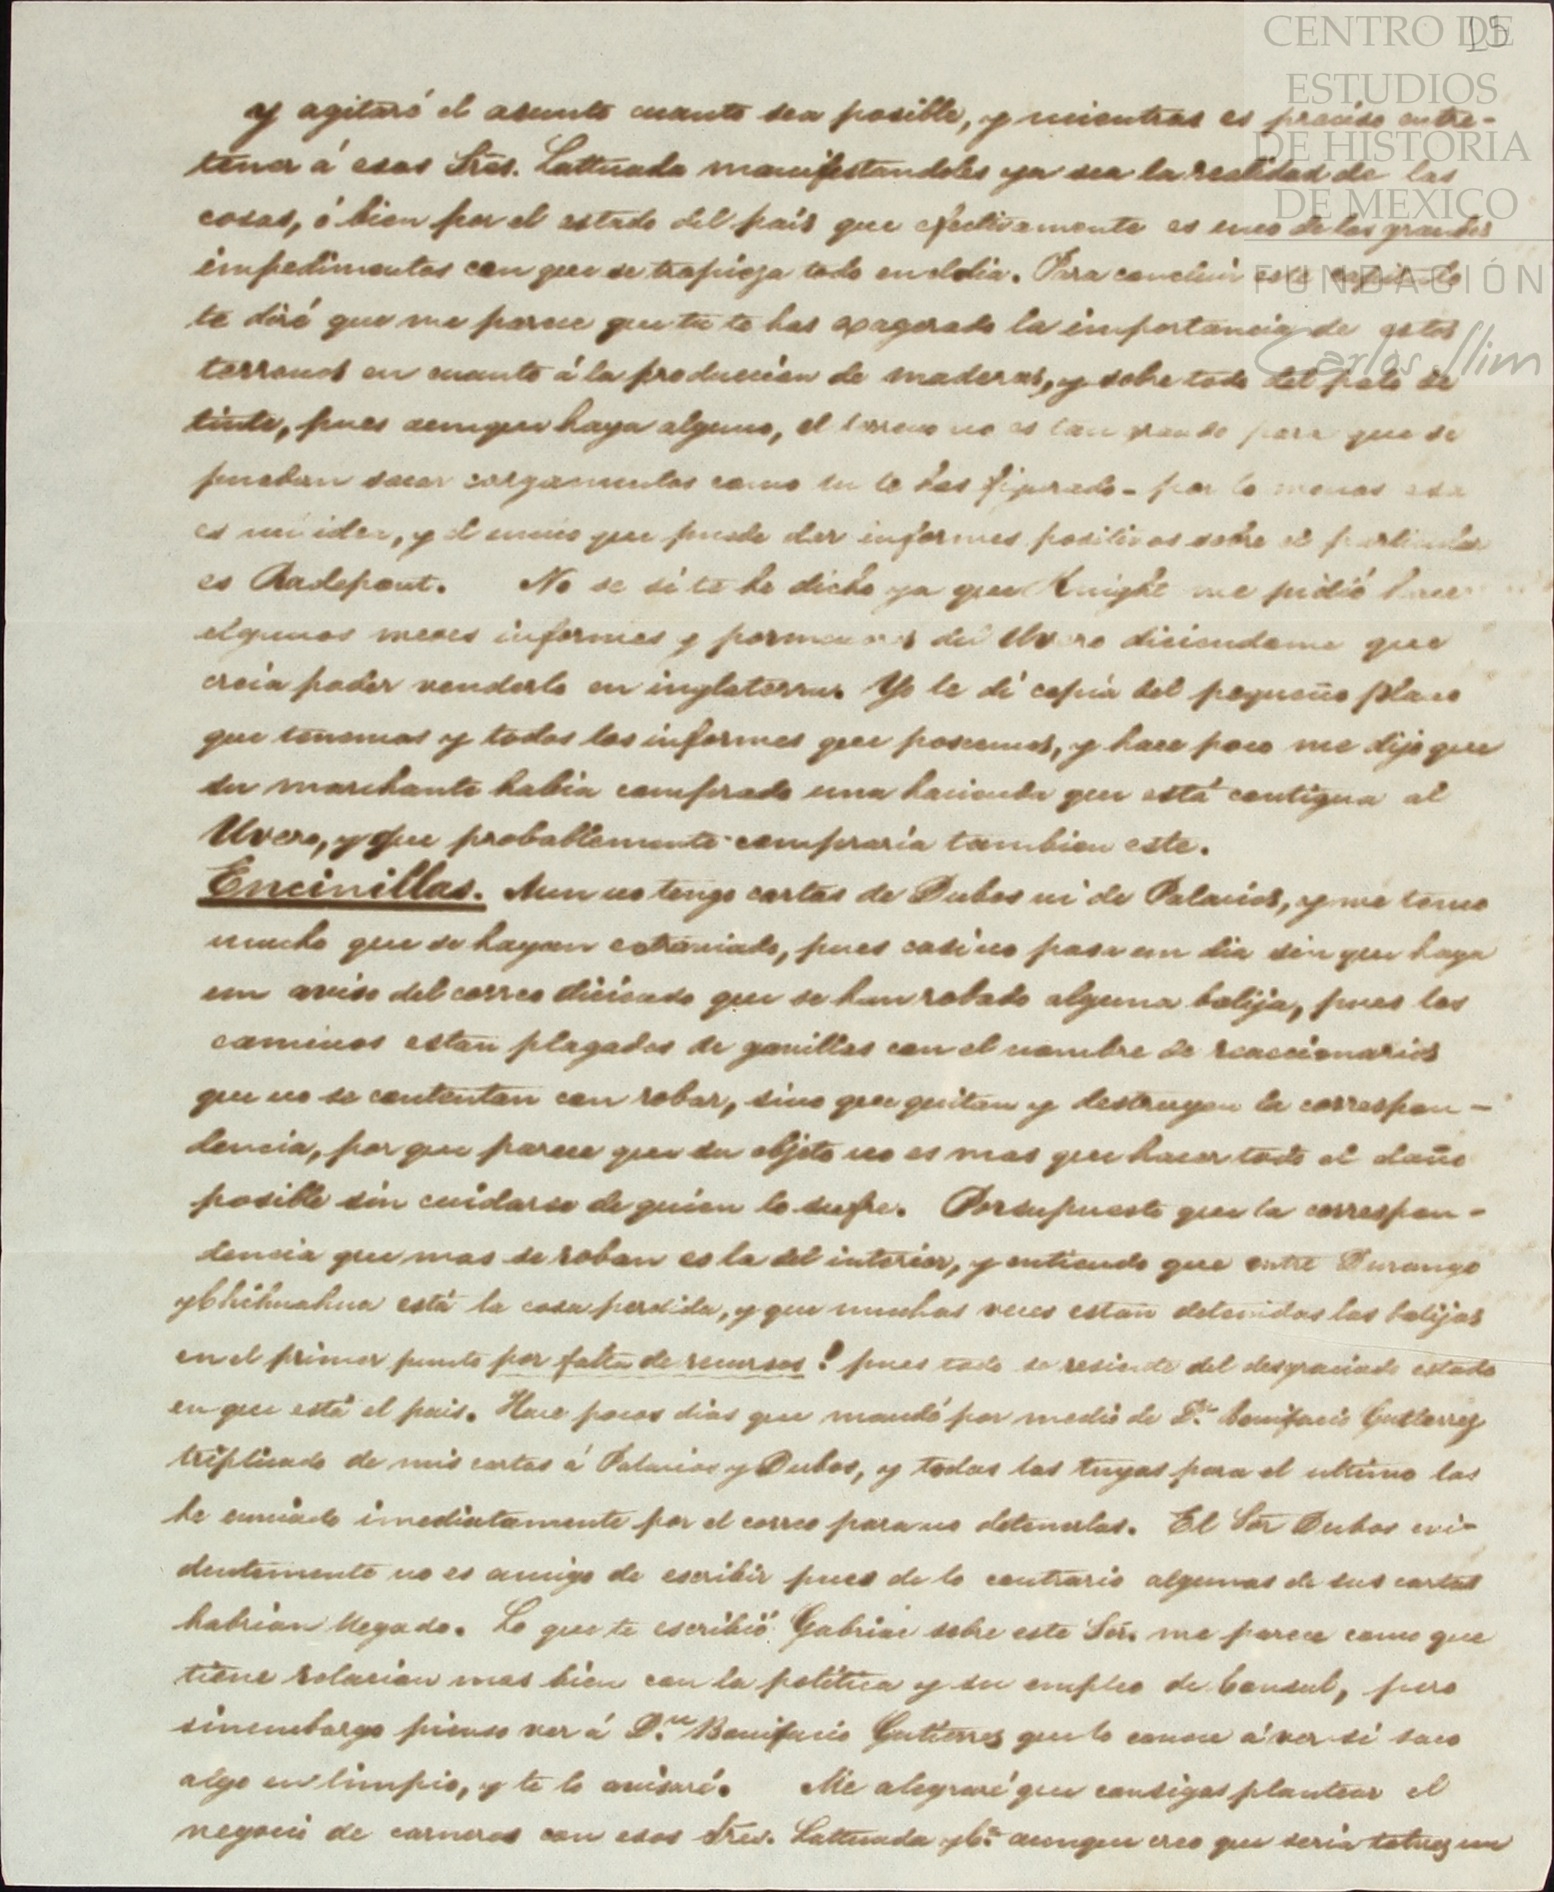 15
CENTRO DE
ESTUDIOS
DE HISTORIA
DE MEXICO
FUNDACIÓN
Carlos Slim
y agitaré el asunto cuanto sea posible, y mientras es preciso entre-
tener á esos Sres. Lattuada manifestandoles ya sea la realidad de las
cosas, ó bien por el estado del país que efectivamente es uno de los grandes
impedimentos con que se tropieza todo en el dia. Para concluir este capitulo
te diré que me parece que tu te has exagerado la importancia de estos
terrenos en cuanto á la produccion de maderas, y sobre todo del palo de
tinte, pues aunque haya alguno, el terreno no es tan grande para que se
puedan sacar cargamentos como tu te has figurado - por lo menos esa
es mi idea, y el unico que puede dar informes positivos sobre el particular
es Radepont. No se si te he dicho ya que Knight me pidió hace
algunos meses informes y pormenores del Uvero diciendome que
creia poder venderlo en inglaterra. Yo le dí copia del pequeño plano
que tenemos y todos los informes que poseemos, y hace poco me dijo que
su marchante habia comprado una hacienda que está contigua al
Uvero, y que probablemente compraria tambien este.
Encinillas. Aun no tengo cartas de Dubos ni de Palacios, y me temo
mucho que se hayan estraviado, pues casi no pasa un dia sin que haya
un aviso del correo diciendo que se han robado alguna balija, pues los
caminos estan plagados de gavillas con el nombre de reaccionarios
que no se contentan con robar, sino que quitan y destruyen la correspon-
dencia, por que parece que su objeto no es mas que hacer todo el daño
posible sin cuidarse de quien lo sufre. Porsupuesto que la correspon-
dencia que mas se roban es la del interior, y entiendo que entre Durango
y Chihuahua está la cosa perdida, y que muchas veces estan detenidas las balijas
en el primer punto por falta de recursos! pues todo se resiente del desgraciado estado
en que está el pais. Hace pocos dias que mandé por medio de Dn. Bonifacio Gutierrez
triplicado de mis cartas á Palacios y Dubos, y todas las tuyas para el ultimo las
he enviado imediatamente por el correo para no detenerlas. El Sor Dubos evi-
dentemente no es amigo de escribir pues de lo contrario algunas de sus cartas
habrian llegado. Lo que te escribió Gabriac sobre este Sor. me parece como que
tiene relacion mas bien con la politica y su empleo de Consul, pero
sinembargo pienso ver á Dn. Bonifacio Gutierrez que lo conoce á ver si saco
algo en limpio, y te lo avisaré. Me alegraré que consigas plantear el
negocio de carneros con esos Sres. Lattuada y Ca. aunque creo que seria talvez un